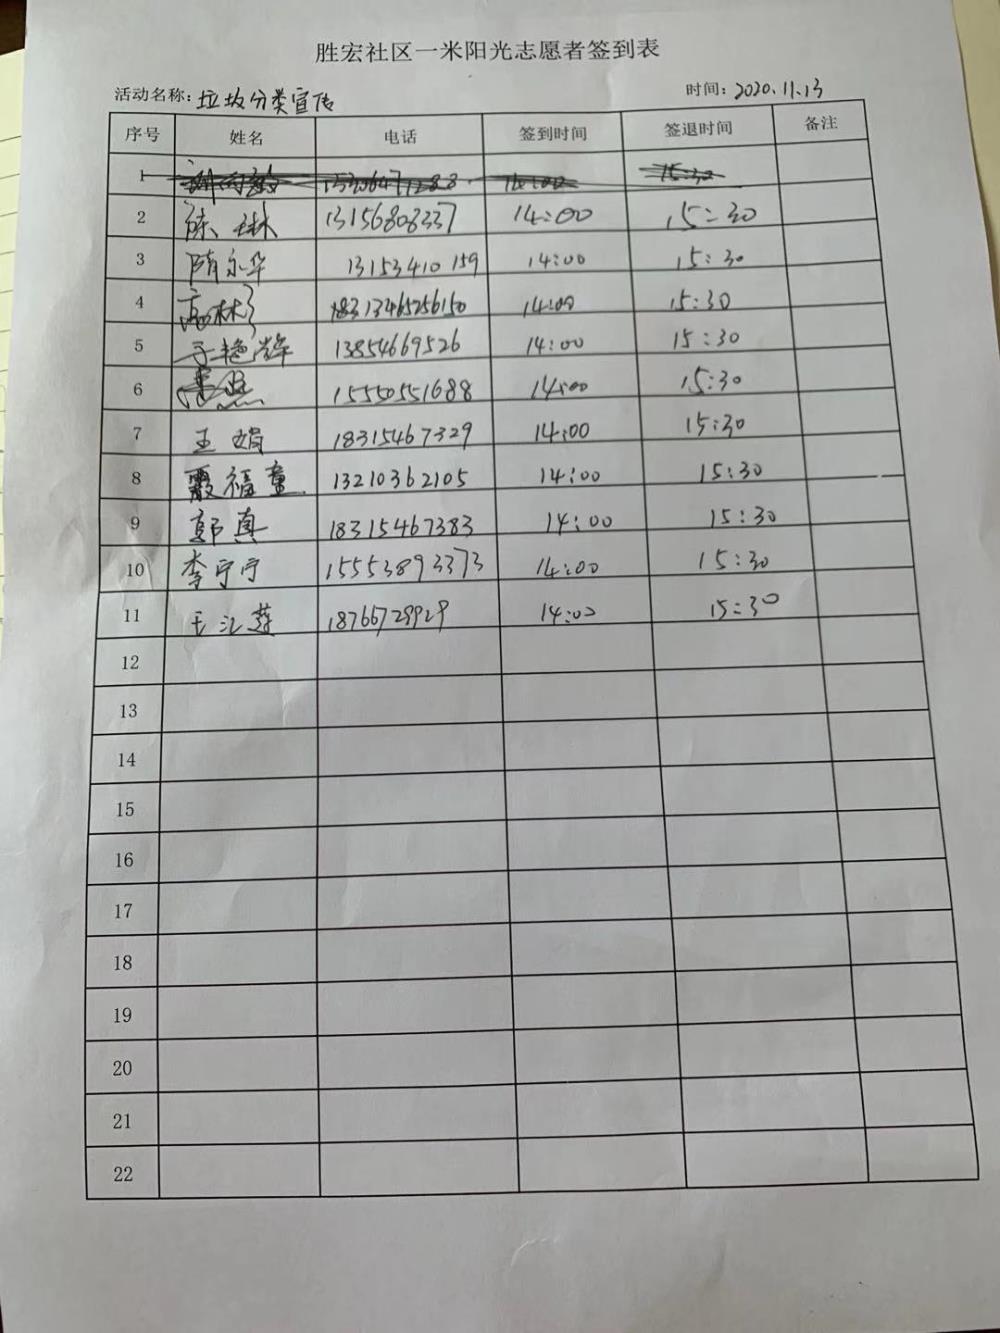 胜宏社区一米阳光志愿者签到表
活动名称：垃圾分类宣传 时间：2020.11.13
序号 姓名 电话 签到时间 签退时间 备注
1 14:00 15:30
2 陈琳 13156808337 14:00 15:30
3 隋永华 13153410159 14:00 15:30
4 14:00 15:30
5 于艳辉 13854669526 14:00 15:30
6 15550551688 14:00 15:30
7 王娟 18315467329 14:00 15:30
8 福童 13210362105 14:00 15:30
9 郭真 18315467383 14:00 15:30
10 李宁宁 15553893373 14:00 15:30
11 王汇莲 18766728929 14:00 15:30
12
13
14
15
16
17
18
19
20
21
22